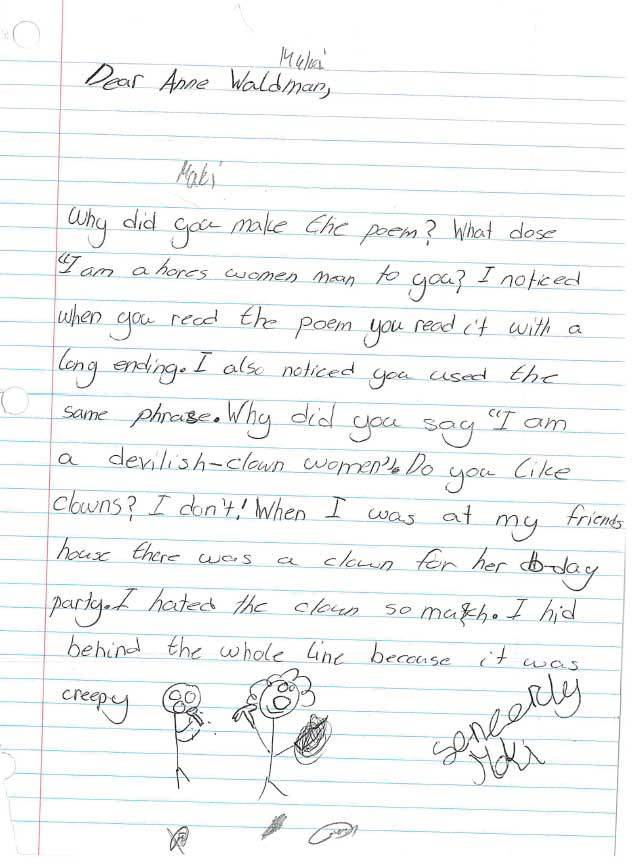 Maki
Dear Anne Waldman,
Maki
Why did you make the poem? What dose
"I am a hores women mean to you? I noticed
when you read the poem you read it with a
long ending. I also noticed you used the
same phrase. Why did you say "I am
a devilish-clown women". Do you like
clowns? I don't! When I was at my friends
house there was a clown for her b-day
party. I hated the clown so much. I hid
behind the whole line because it was
creepy
sencerly
Maki